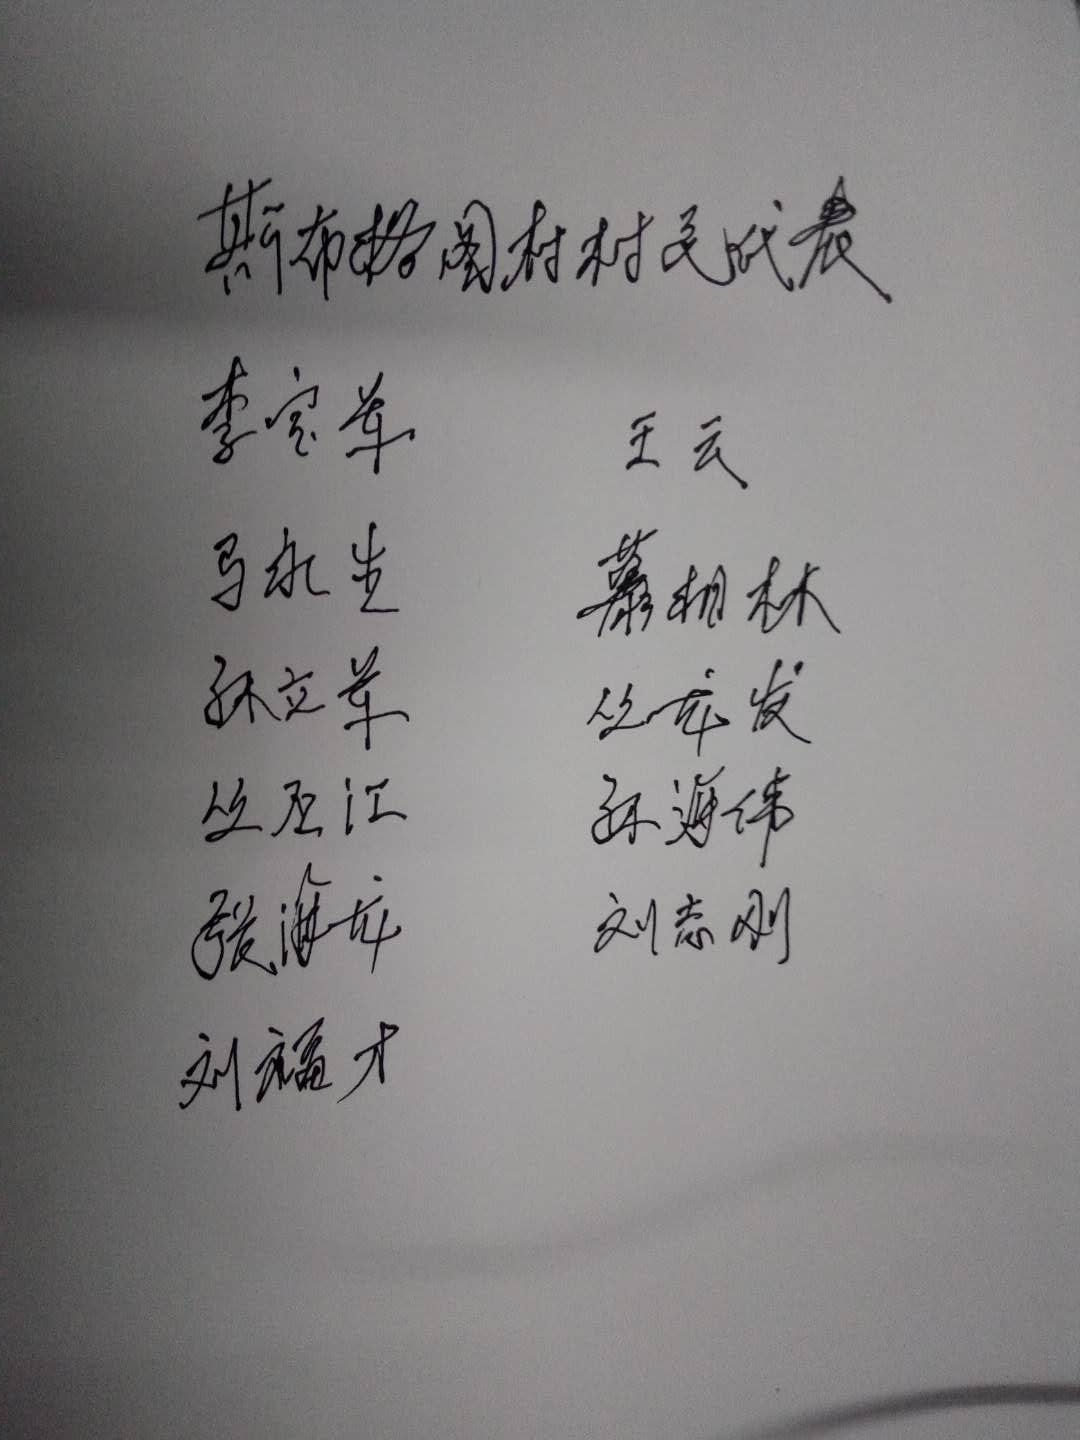 斯布格图村村民代表
李宝军 王云
马永生 慕相林
孙立军 丛龙发
丛玉江 孙海伟
张海龙 刘志刚
刘福才